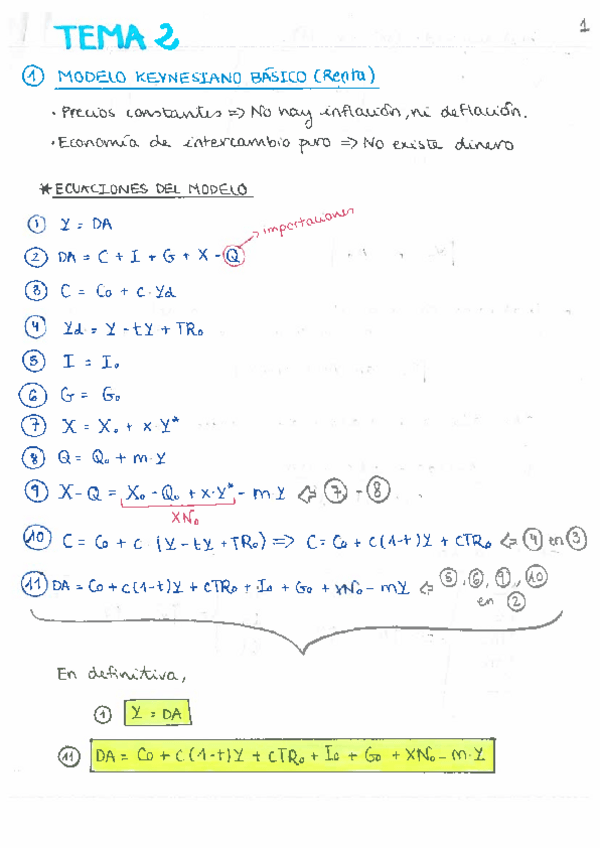 1
TEMA 2
① MODELO KEYNESIANO BÁSICO (Renta)
· Precios constantes => No hay inflación, ni deflación.
· Economía de intercambio puro => No existe dinero
* ECUACIONES DEL MODELO
① Y = DA
② DA = C + I + G + X - Q → importaciones
③ C = C₀ + c·Yd
④ Yd = Y - tY + TR₀
⑤ I = I₀
⑥ G = G₀
⑦ X = X₀ + x·Y*
⑧ Q = Q₀ + m·Y
⑨ X-Q = X₀ - Q₀ + x·Y* - m·Y <= ⑦ - ⑧
XN₀
⑩ C = C₀ + c · (Y - tY + TR₀) => C = C₀ + c(1-t)Y + cTR₀ <= ④ en ③
⑪ DA = C₀ + c(1-t)Y + cTR₀ + I₀ + G₀ + XN₀ - mY <= ⑤, ⑥, ⑨, ⑩
en ②
En definitiva,
① Y = DA
⑪ DA = C₀ + c(1-t)Y + cTR₀ + I₀ + G₀ + XN₀ - m·Y